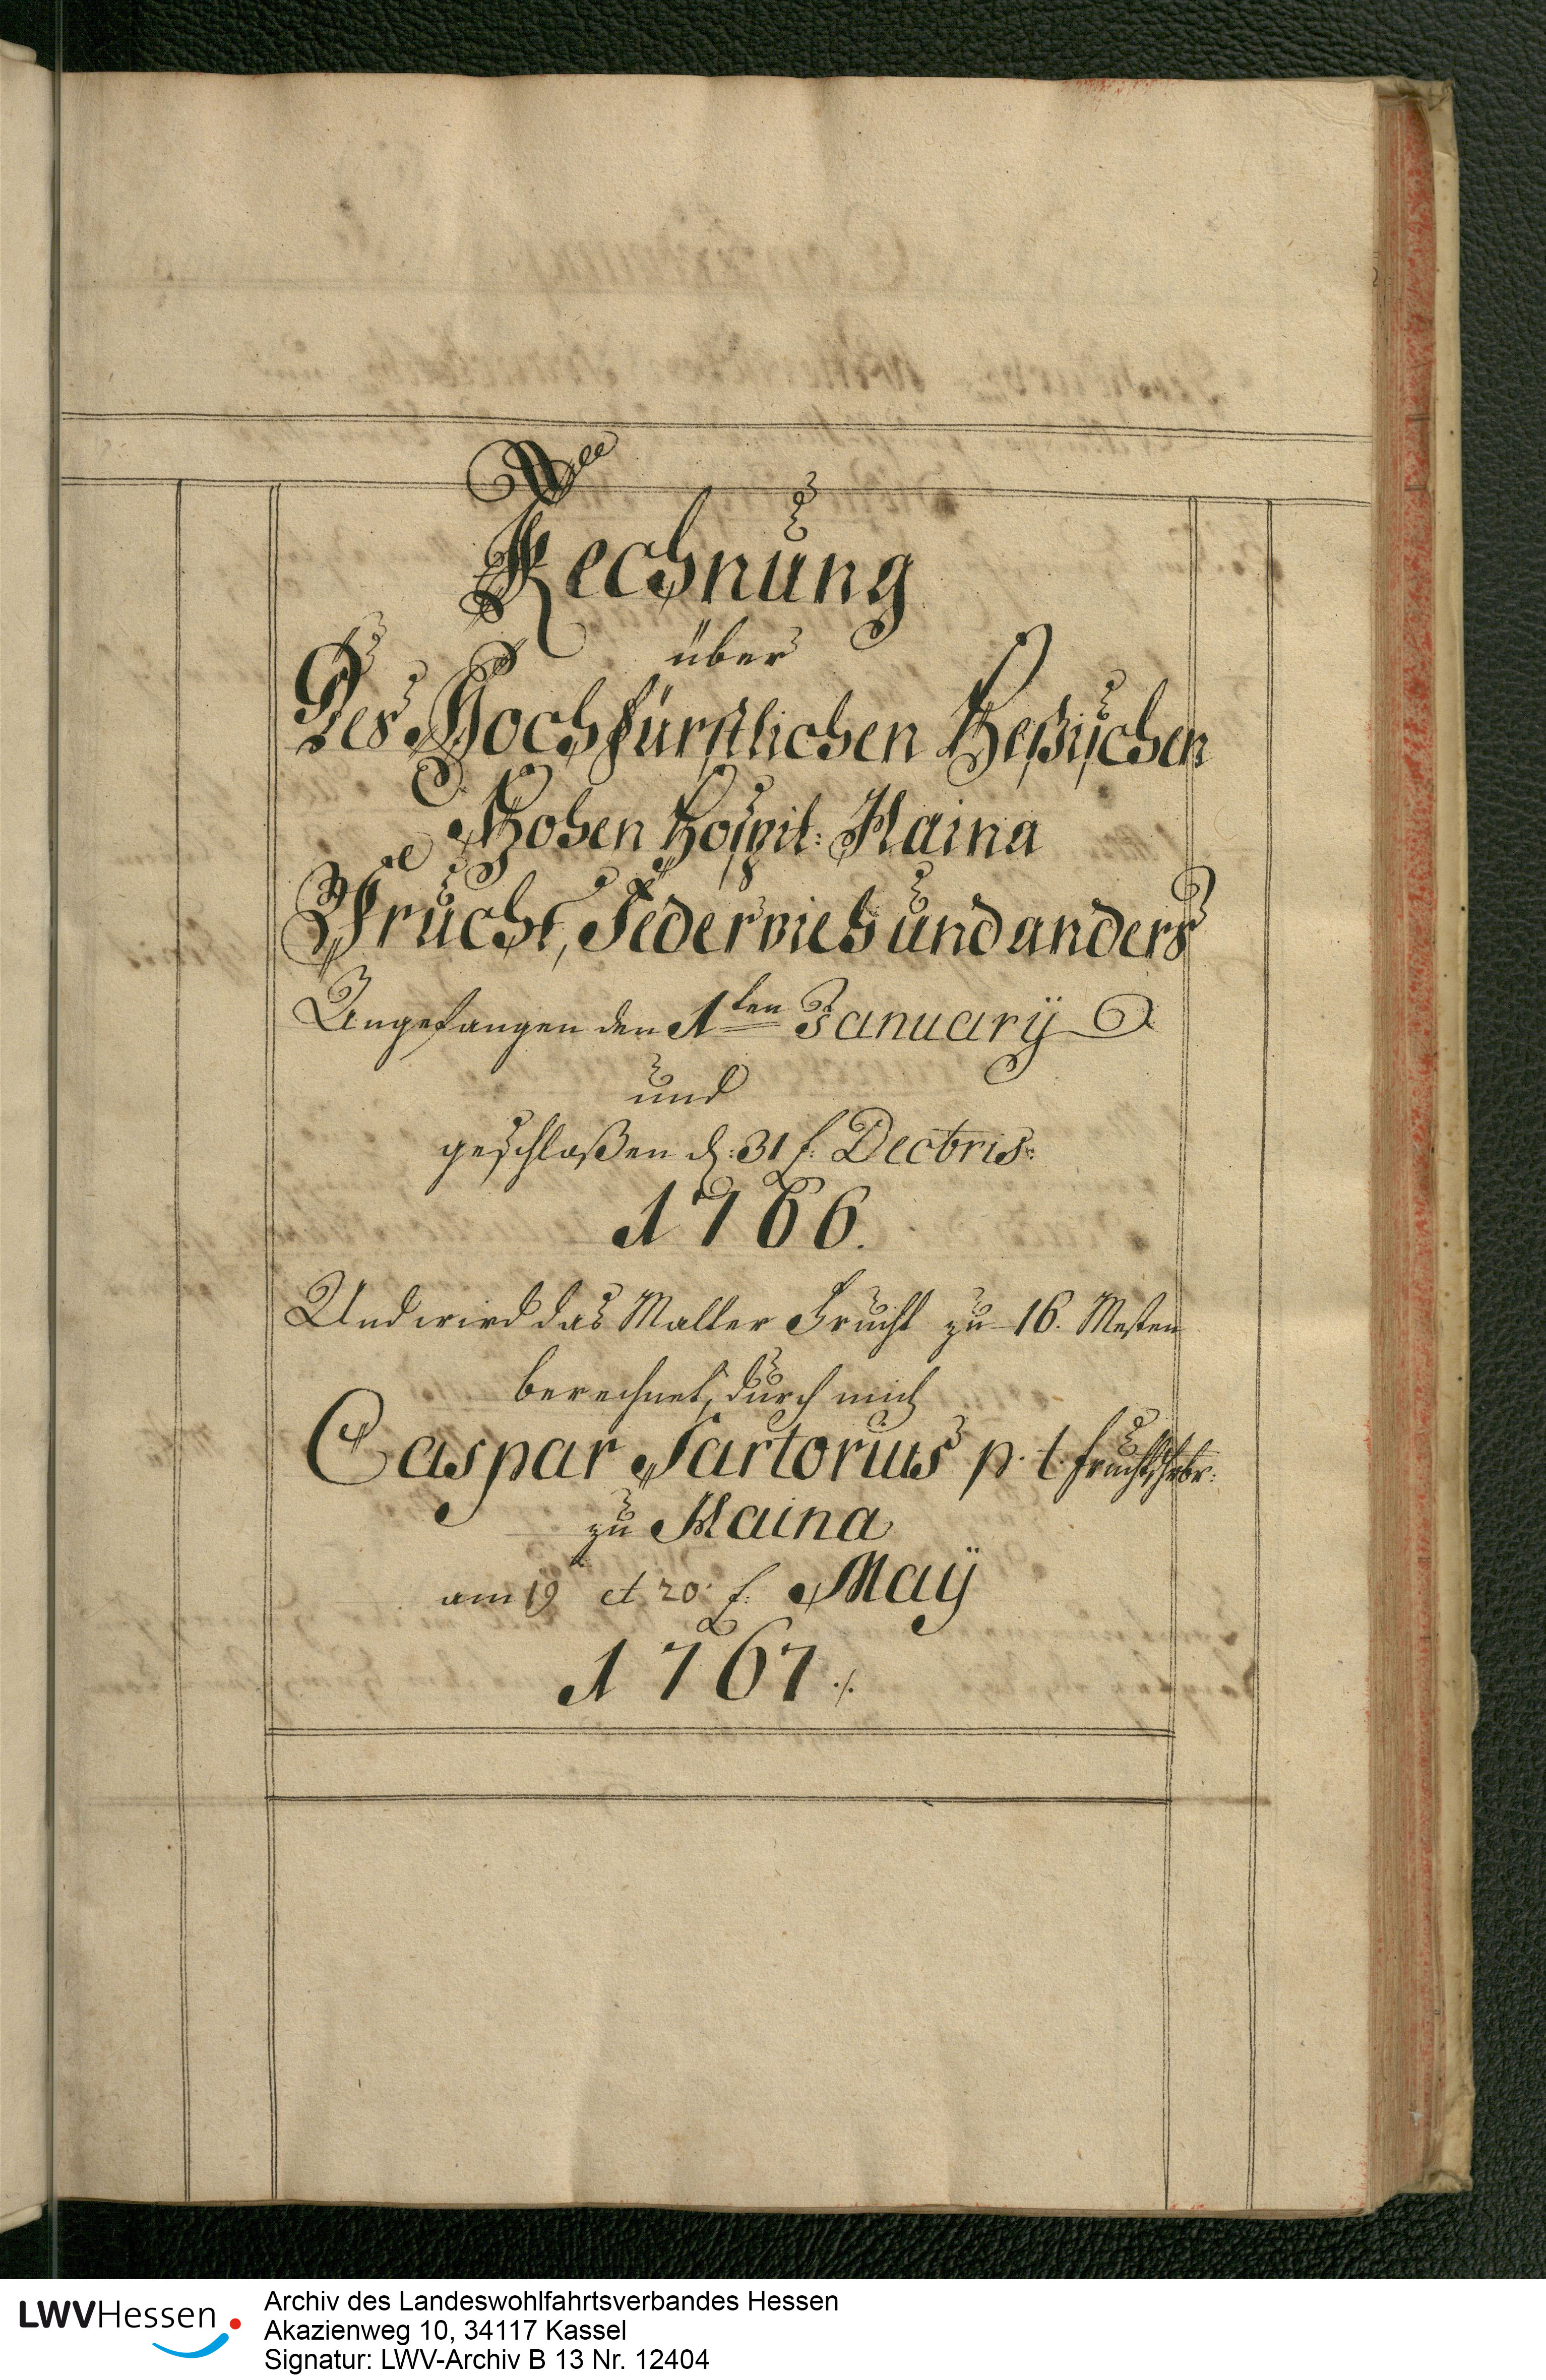 Rechnung
über
Des Hochfürstlichen Heßischen
Hohen Hospit: Haina
Frucht, Federvieh und anders
Angefangen den 1ten January
und
geschloßen d: 31 t: Decbris:
1766.
Und wird das Malter Frucht zu 16. Mesten
berechnet, durch mich
Caspar Sartorius p. t. fruchtschrbr:
zu Haina
am 19 et 20. t: May
1767 ./.
LWVHessen
Archiv des Landeswohlfahrtsverbandes Hessen
Akazienweg 10, 34117 Kassel
Signatur: LWV-Archiv B 13 Nr. 12404